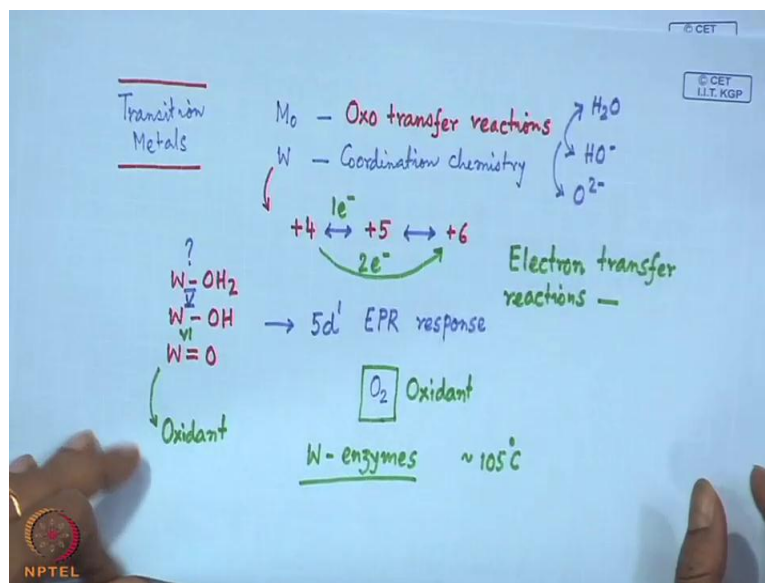 © CET
© CET
I.I.T. KGP
Transition
Metals
Mo – Oxo transfer reactions
W – Coordination chemistry
H₂O
HO⁻
O²⁻
1e⁻
+4 ↔ +5 ↔ +6
2e⁻
Electron transfer
reactions —
?
W – OH₂
V
W – OH → 5d¹ EPR response
VI
W = O
O₂ Oxidant
Oxidant
W- enzymes ~ 105°C
NPTEL